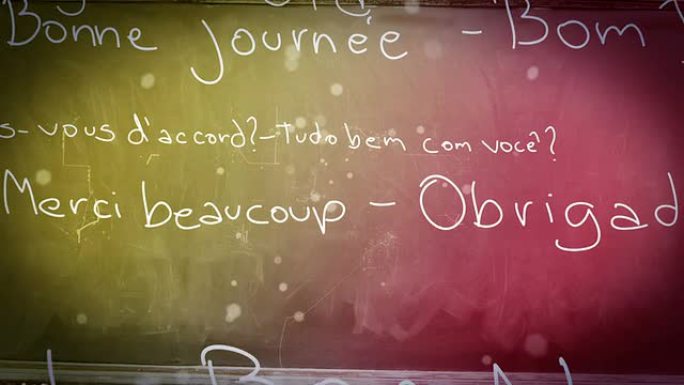 Bonne journée - Bom
s-vous d'accord?-Tudo bem com você?
Merci beaucoup - Obrigad